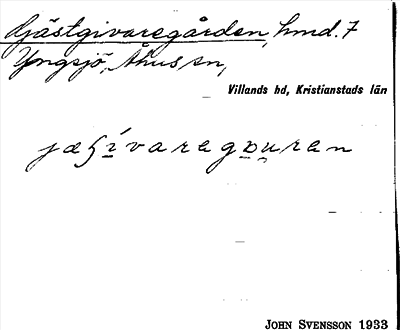 Gästgivaregården, hmd. 7
Yngsjö, Åhus sn,
Villands hd, Kristianstads län
JOHN SVENSSON 1933